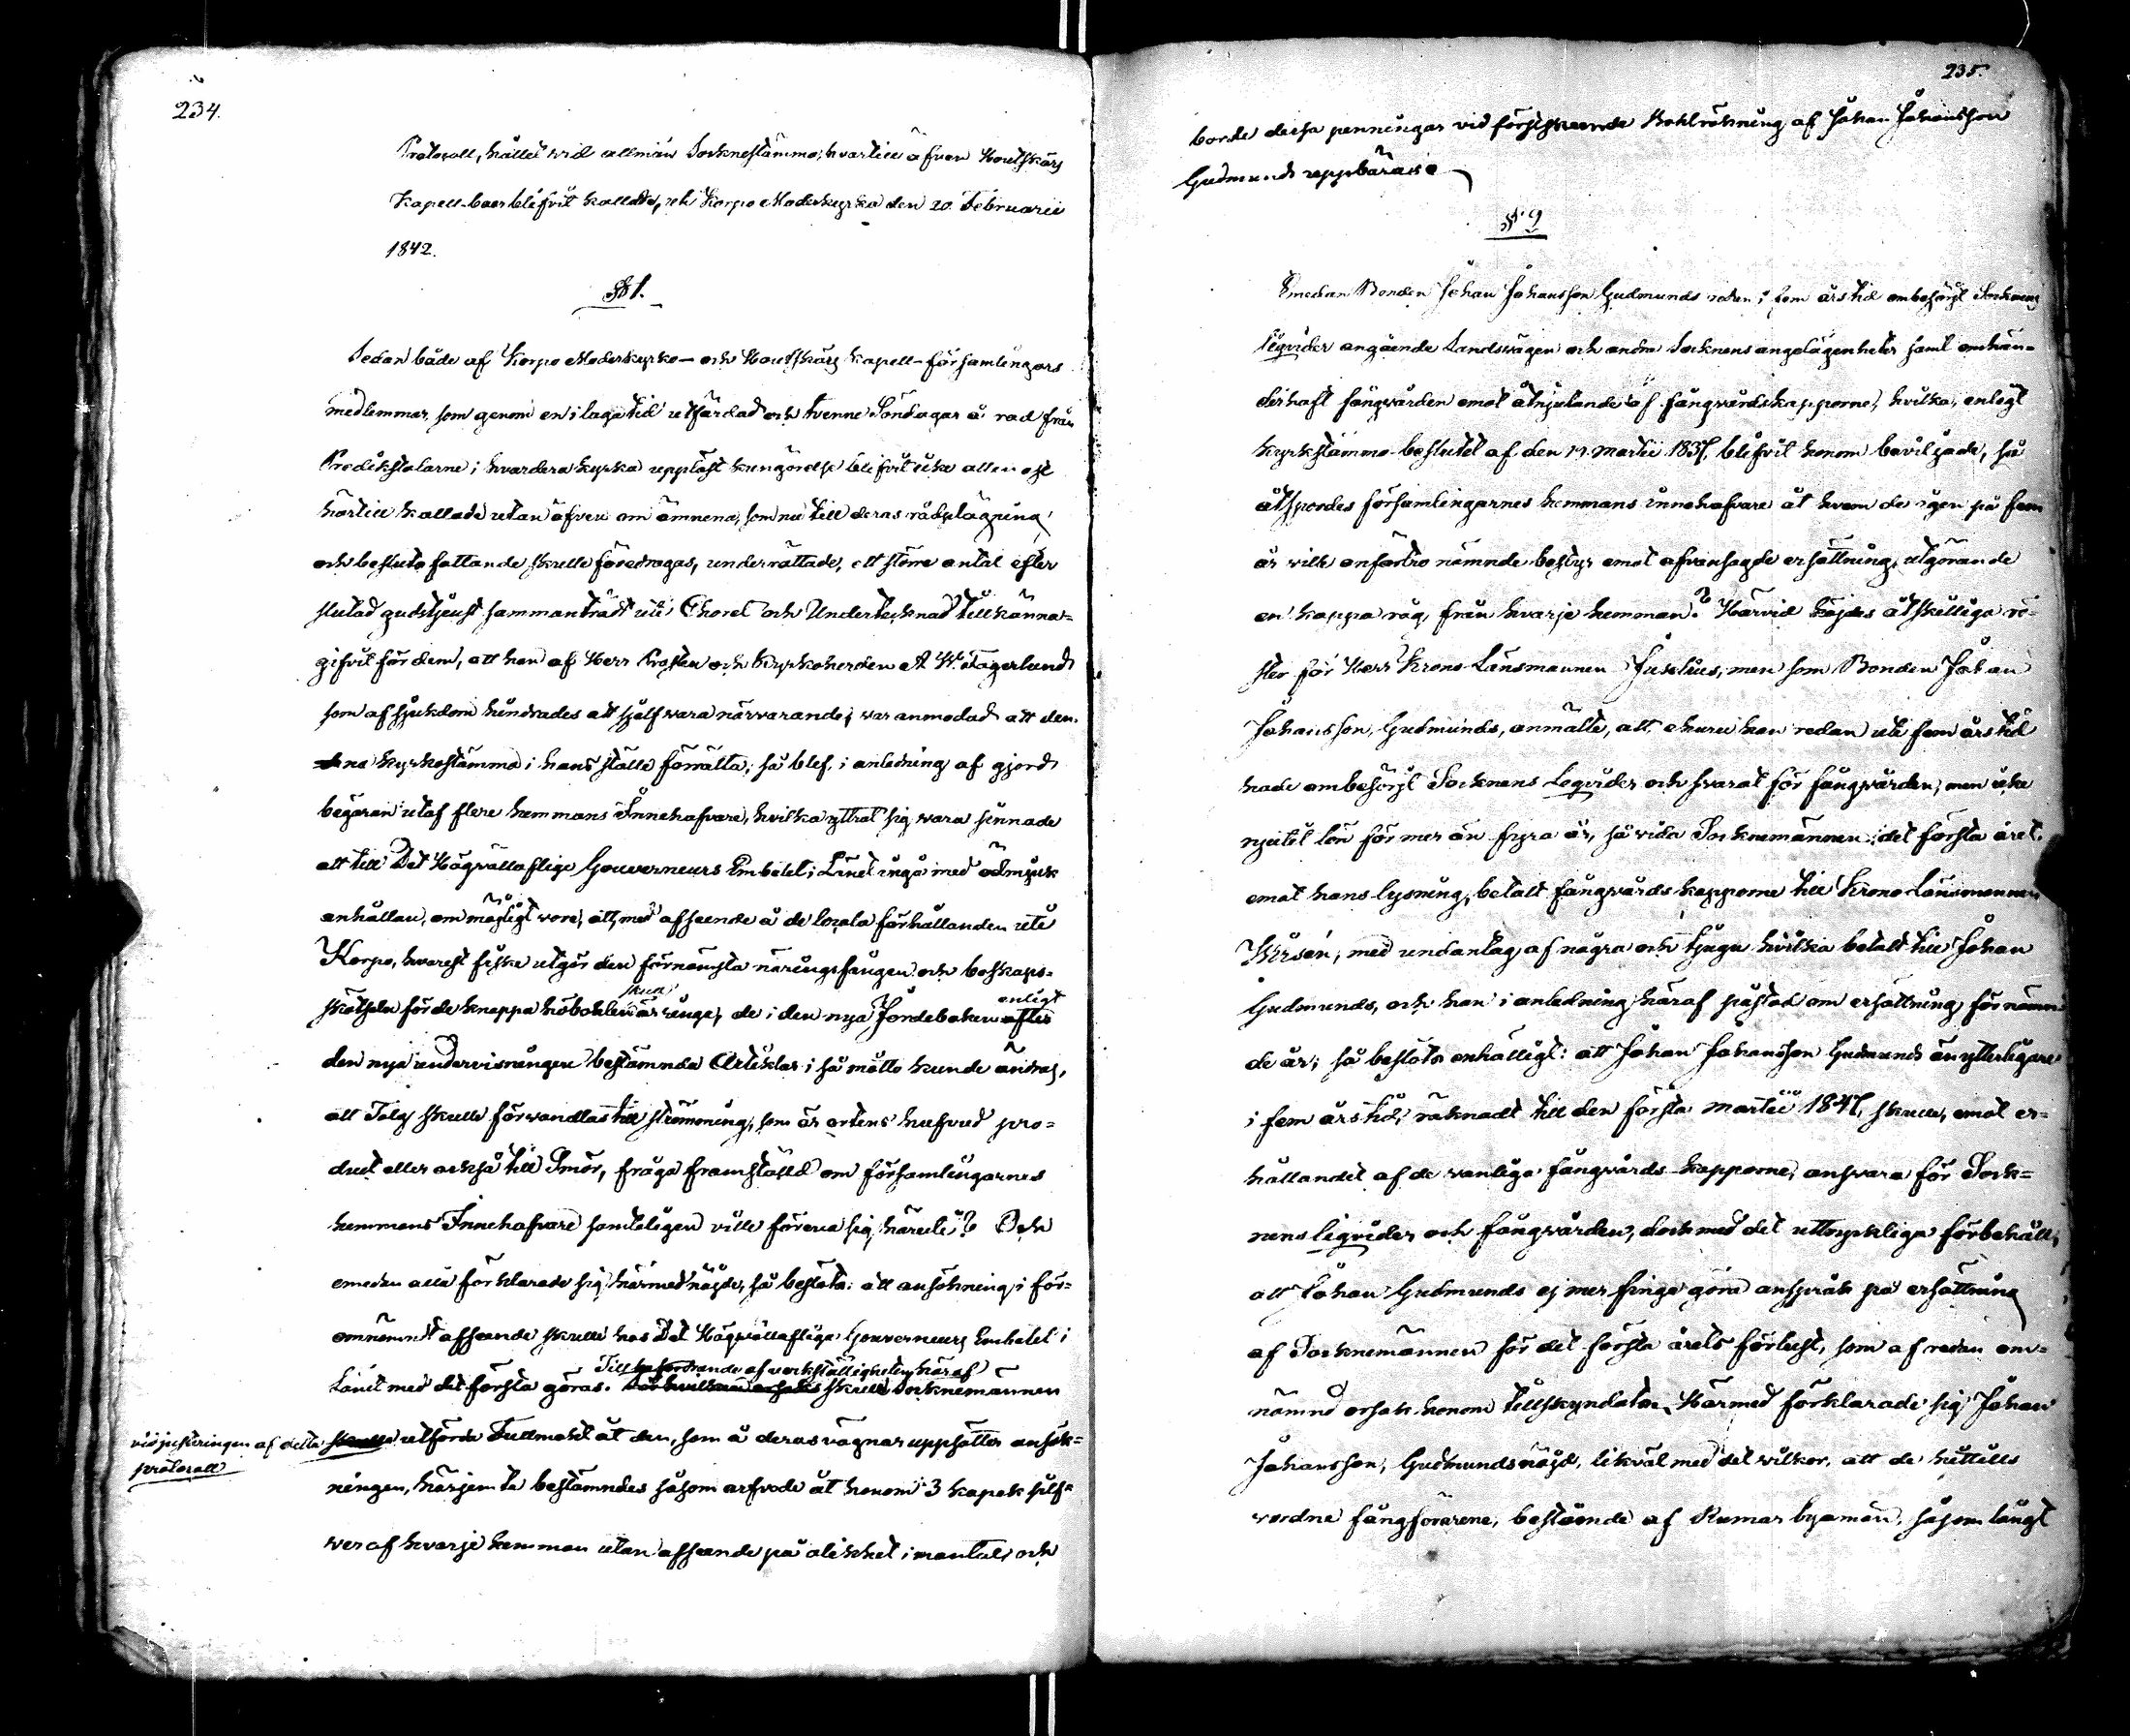 234.
Protocoll, hållet wid allmän Socknestämma, hvartill äfven Houtskärs
Kapell-boer blifvit kallade, uti Korpo Moderkyrka den 20 Februarii
1842.
§ 1.
Sedan både af Korpo Moderkyrko- och Houtskärs Kapell-församlingars
medlemmar, som genom en i laga tid utfärdad och tvenne Söndagar å rad från
Predikstolarne i hvardera kyrka uppläst kungörelse blifvit icke allenast
härtill kallade utan äfven om ämnena, som nu till deras rådplägning
och besluts fattande skulle föredragas, underrättade, ett större antal efter
slutad gudstjenst sammanträdt uti Choret och Undertecknad tillkänna-
gifvit för dem, att han af Herr Prosten och Kyrkoherden A. W. Fagerlund
som af sjukdom hindrades att sjelf wara närvarande, war anmodad att den-
na kyrkostämma i hans ställe förrätta; så blef, i anledning af gjord
begäran utaf flere hemmans Innehafvare, hvilka yttrat sig wara sinnade
att till Det Högvällaflige Gouverneurs Embetet i Länet ingå med ödmjuk
anhållan, om möjligt wore, att, med afseende å de locala förhållanden uti
Korpo, hvarest fiske utgör den förnämsta näringsfången och boskaps-
skötseln för de knappa höbohlen skull är ringa, de i den nya Jordeboken enligt
den nya undervisningen bestämnda Artiklar i så måtto kunde ändras,
att Talg skulle förwandlas till strömming, som är ortens hufvud pro-
duct eller också till Smör, fråga framställd om församlingarnes
hemmans Innehafvare samteligen ville förena sig häruti? Och
emedan alla förklarade sig härmed nöjde, så beslöts: att ansökning i för-
omnämnt afseende skulle hos Det Högvällaflige Gouverneurs Embetet i
Länet med det första göras. Till befordrande af verkställigheten häraf skulle Socknemännen
vid justeringen af detta
protocoll
utfärda Fullmakt åt den, som å deras vägnar uppsätter ansök-
ningen, härjemte bestämndes såsom arfvode åt honom 3 kopek silf-
wer af hvarje hemman utan afseende på olikhet i mantal, och
235.
borde dessa penningar vid förstskeende Bohlräkning af Johan Johansson
Gudmunds uppbäras.
§ 2
Emedan Bonden Johan Johansson Gudmunds redan i fem års tid ombesörjt Socknens
liqvider angående Landswägen och andra Socknens angelägenheter samt omhän-
derhaft fångwården emot åtnjutande af fångwårdskapporne, hvilka, enligt
kyrkstämmo-beslutet af den 19 Martii 1837, blifvit honom beviljade, så
åtspordes församlingarnes hemmans innehafvare åt hvem de igen på fem
år wille anförtro nämnde bestyr emot ofvansagde ersättning, utgörande
en kappa råg från hvarje hemman? Härvid höjdes åtskilliga rö-
ster för Herr Krono-Länsmannen Juselius; men som Bonden Johan
Johansson, Gudmunds, anmälte, att ehuru han redan uti fem års tid
hade ombesörjt Socknens Liqvider och svarat för fångwården, men icke
njutit lön för mer än fyra år, så vida Socknemännen i det första året,
emot hans lysning, betalt fångwårdskapporne till Krono-Länsmannen
Wirsén, med undantag af några och tjugu hvilka betalt till Johan
Gudmunds, och han i anledning häraf påstod om ersättning för nämn-
de år; så beslöts enhälligt: att Johan Johansson Gudmunds än ytterligare
i fem års tid, räknadt till den första Martii 1847, skulle, emot er-
hållandet af de vanliga fångwårds-kapporne, answara för Sock-
nens liqvider och fångwården, dock med det uttryckliga förbehåll,
att Johan Gudmunds ej mer finge göra anspråk på ersättning
af Socknemännen för det första årets förlust, som af redan om-
nämnd orsak honom tillskyndats. Härmed förklarade sig Johan
Johansson, Gudmunds nöjd, likväl med det wilkor, att de hittills
wordne fångförarene, bestående af Rumar byamän, såsom längst